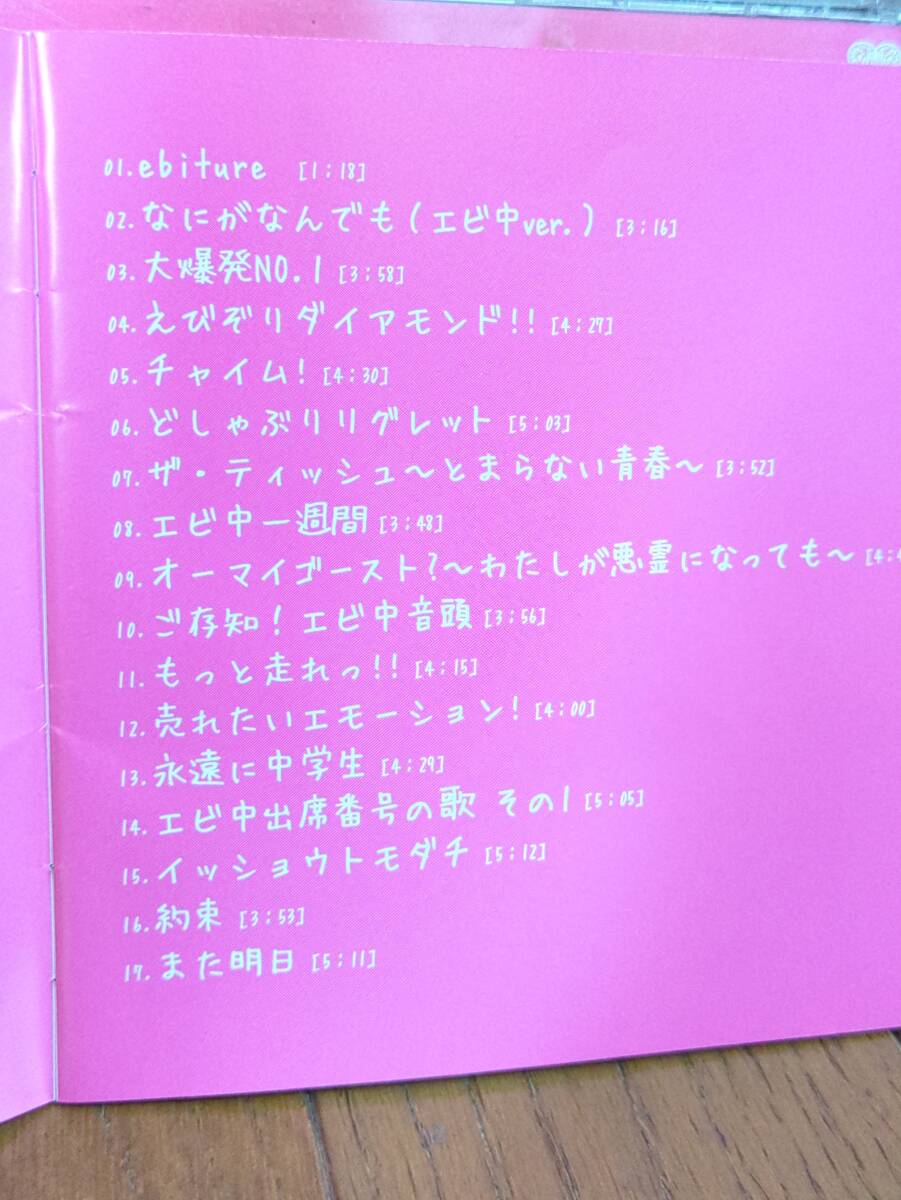 01.ebiture [1:18]
02.なにがなんでも(エビ中ver.) [3:16]
03.大爆発NO.1 [3:58]
04.えびぞりダイアモンド!! [4:27]
05.チャイム! [4:30]
06.どしゃぶりリグレット [5:03]
07.ザ・ティッシュ～とまらない青春～ [3:52]
08.エビ中一週間 [3:48]
09.オーマイゴースト?～わたしが悪霊になっても～ [4:
10.ご存知! エビ中音頭 [3:56]
11.もっと走れっ!! [4:15]
12.売れたいエモーション! [4:00]
13.永遠に中学生 [4:29]
14.エビ中出席番号の歌 その1 [5:05]
15.イッショウトモダチ [5:12]
16.約束 [3:53]
17.また明日 [5:11]